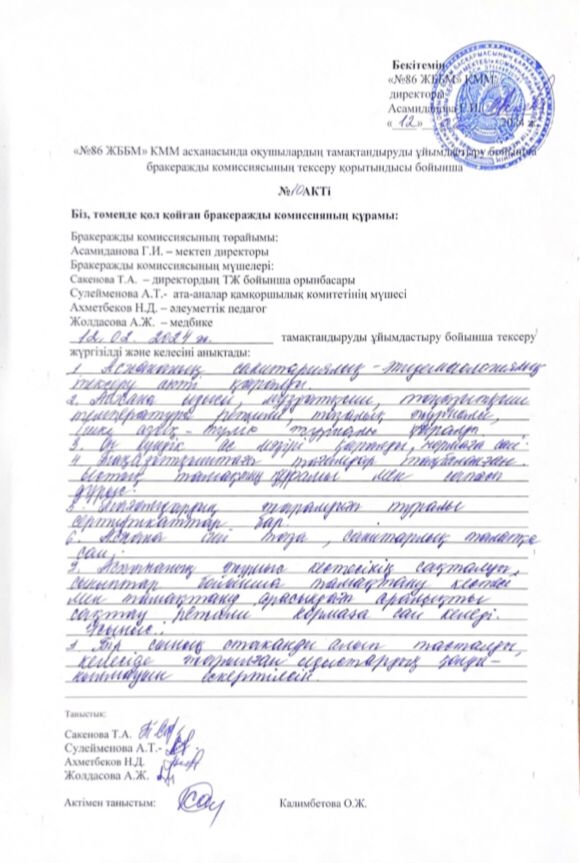 Бекітемін
«№86 ЖББМ» КММ
директоры
Асамиданова Г.И.
«12» 2024 ж.
«№86 ЖББМ» КММ асханасында оқушылардың тамақтандыруды ұйымдастыру бойынша
бракеражды комиссиясының тексеру қорытындысы бойынша
№10 АКТі
Біз, төменде қол қойған бракеражды комиссияның құрамы:
Бракеражды комиссиясының төрайымы:
Асамиданова Г.И. – мектеп директоры
Бракеражды комиссиясының мүшелері:
Сакенова Т.А. – директордың ТЖ бойынша орынбасары
Сулейменова А.Т.- ата-аналар қамқоршылық комитетінің мүшесі
Ахметбеков Н.Д. – әлеуметтік педагог
Жолдасова А.Ж. – медбике
12. 02. 2024 ж. тамақтандыруды ұйымдастыру бойынша тексеру
жүргізілді және келесіні анықтады:
1. Асхананың санитариялық - эпидемиологиялық
тексеру акті қаралды.
2. Асхана ыдысы, мұздатқыш, тоңазытқыш
температура режимі, тазалық журналы,
азық - түлік журналы қаралды.
3. Он күндік ас мәзірі қаралды, нормаға сай.
4. тағамдар таңбаланған.
Ыстық тамақтың құрамы мен сапасы
дұрыс.
5. туралы
сертификаттар бар.
6. Асхана іші таза, санитарлық талапқа
сай.
7. Асхананың жұмыс кестесінің сақталуы,
сыныптар бойынша тамақтану кестесі
мен тамақтану арасындағы аралықты
сақтау режимі нормаға сай келеді.
Ұсыныс:
1. Бір сынық стаканды алып тасталды,
келесіде ыдыстардың
ескертілсін.
Таныстық:
Сакенова Т.А.
Сулейменова А.Т.-
Ахметбеков Н.Д.
Жолдасова А.Ж.
Актімен таныстым: Калимбетова О.Ж.